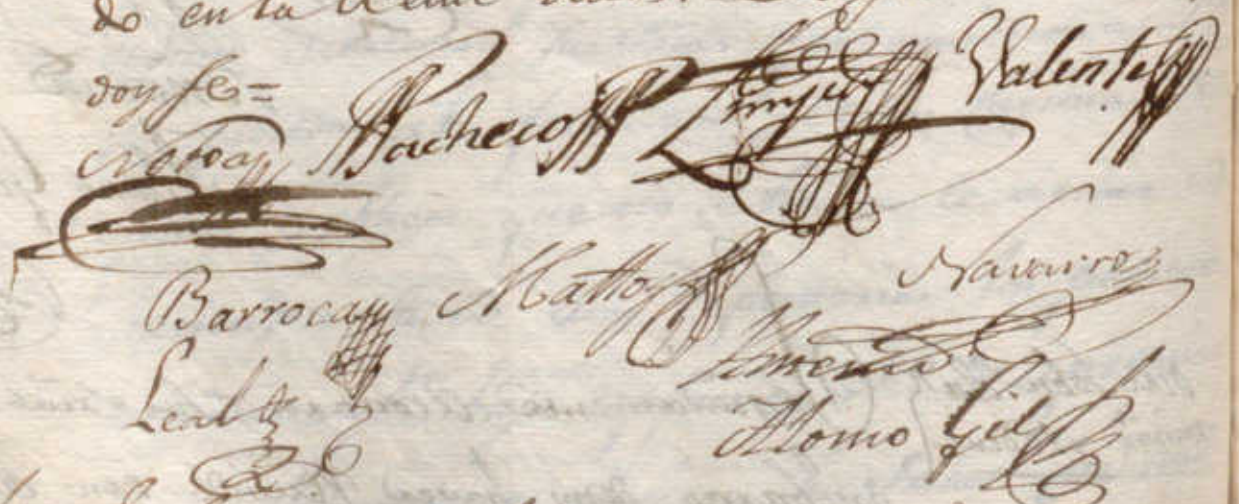 do en la
doy fe=
Novoa Pacheco Valente
Barroca Matto Navarro
Leal Ximenez
Alonso Gil